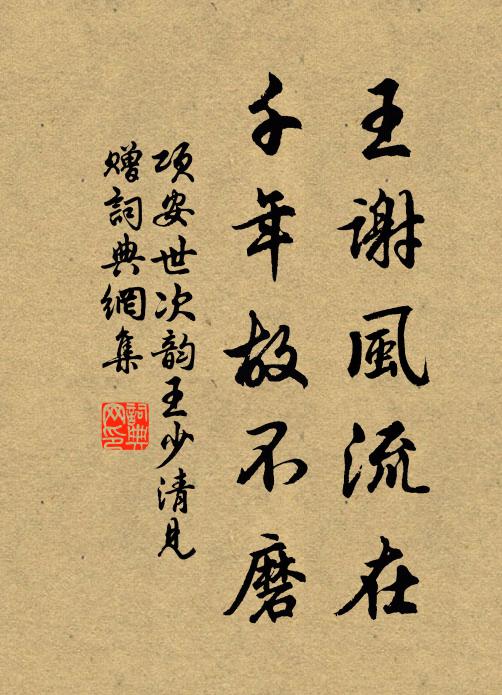 王谢風流在
千年故不磨
项安世次韵王少清見
赠詞典網集
詞典
网印